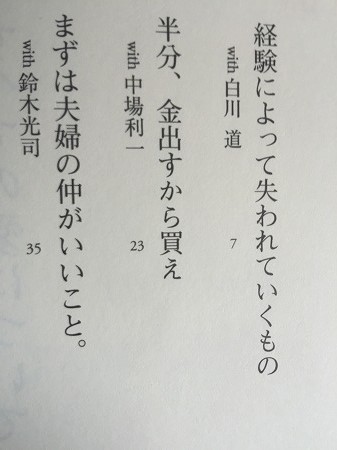 経験によって失われていくもの
with 白川 道
7
半分、金出すから買え
with 中場利一
23
まずは夫婦の仲がいいこと。
with 鈴木光司
35